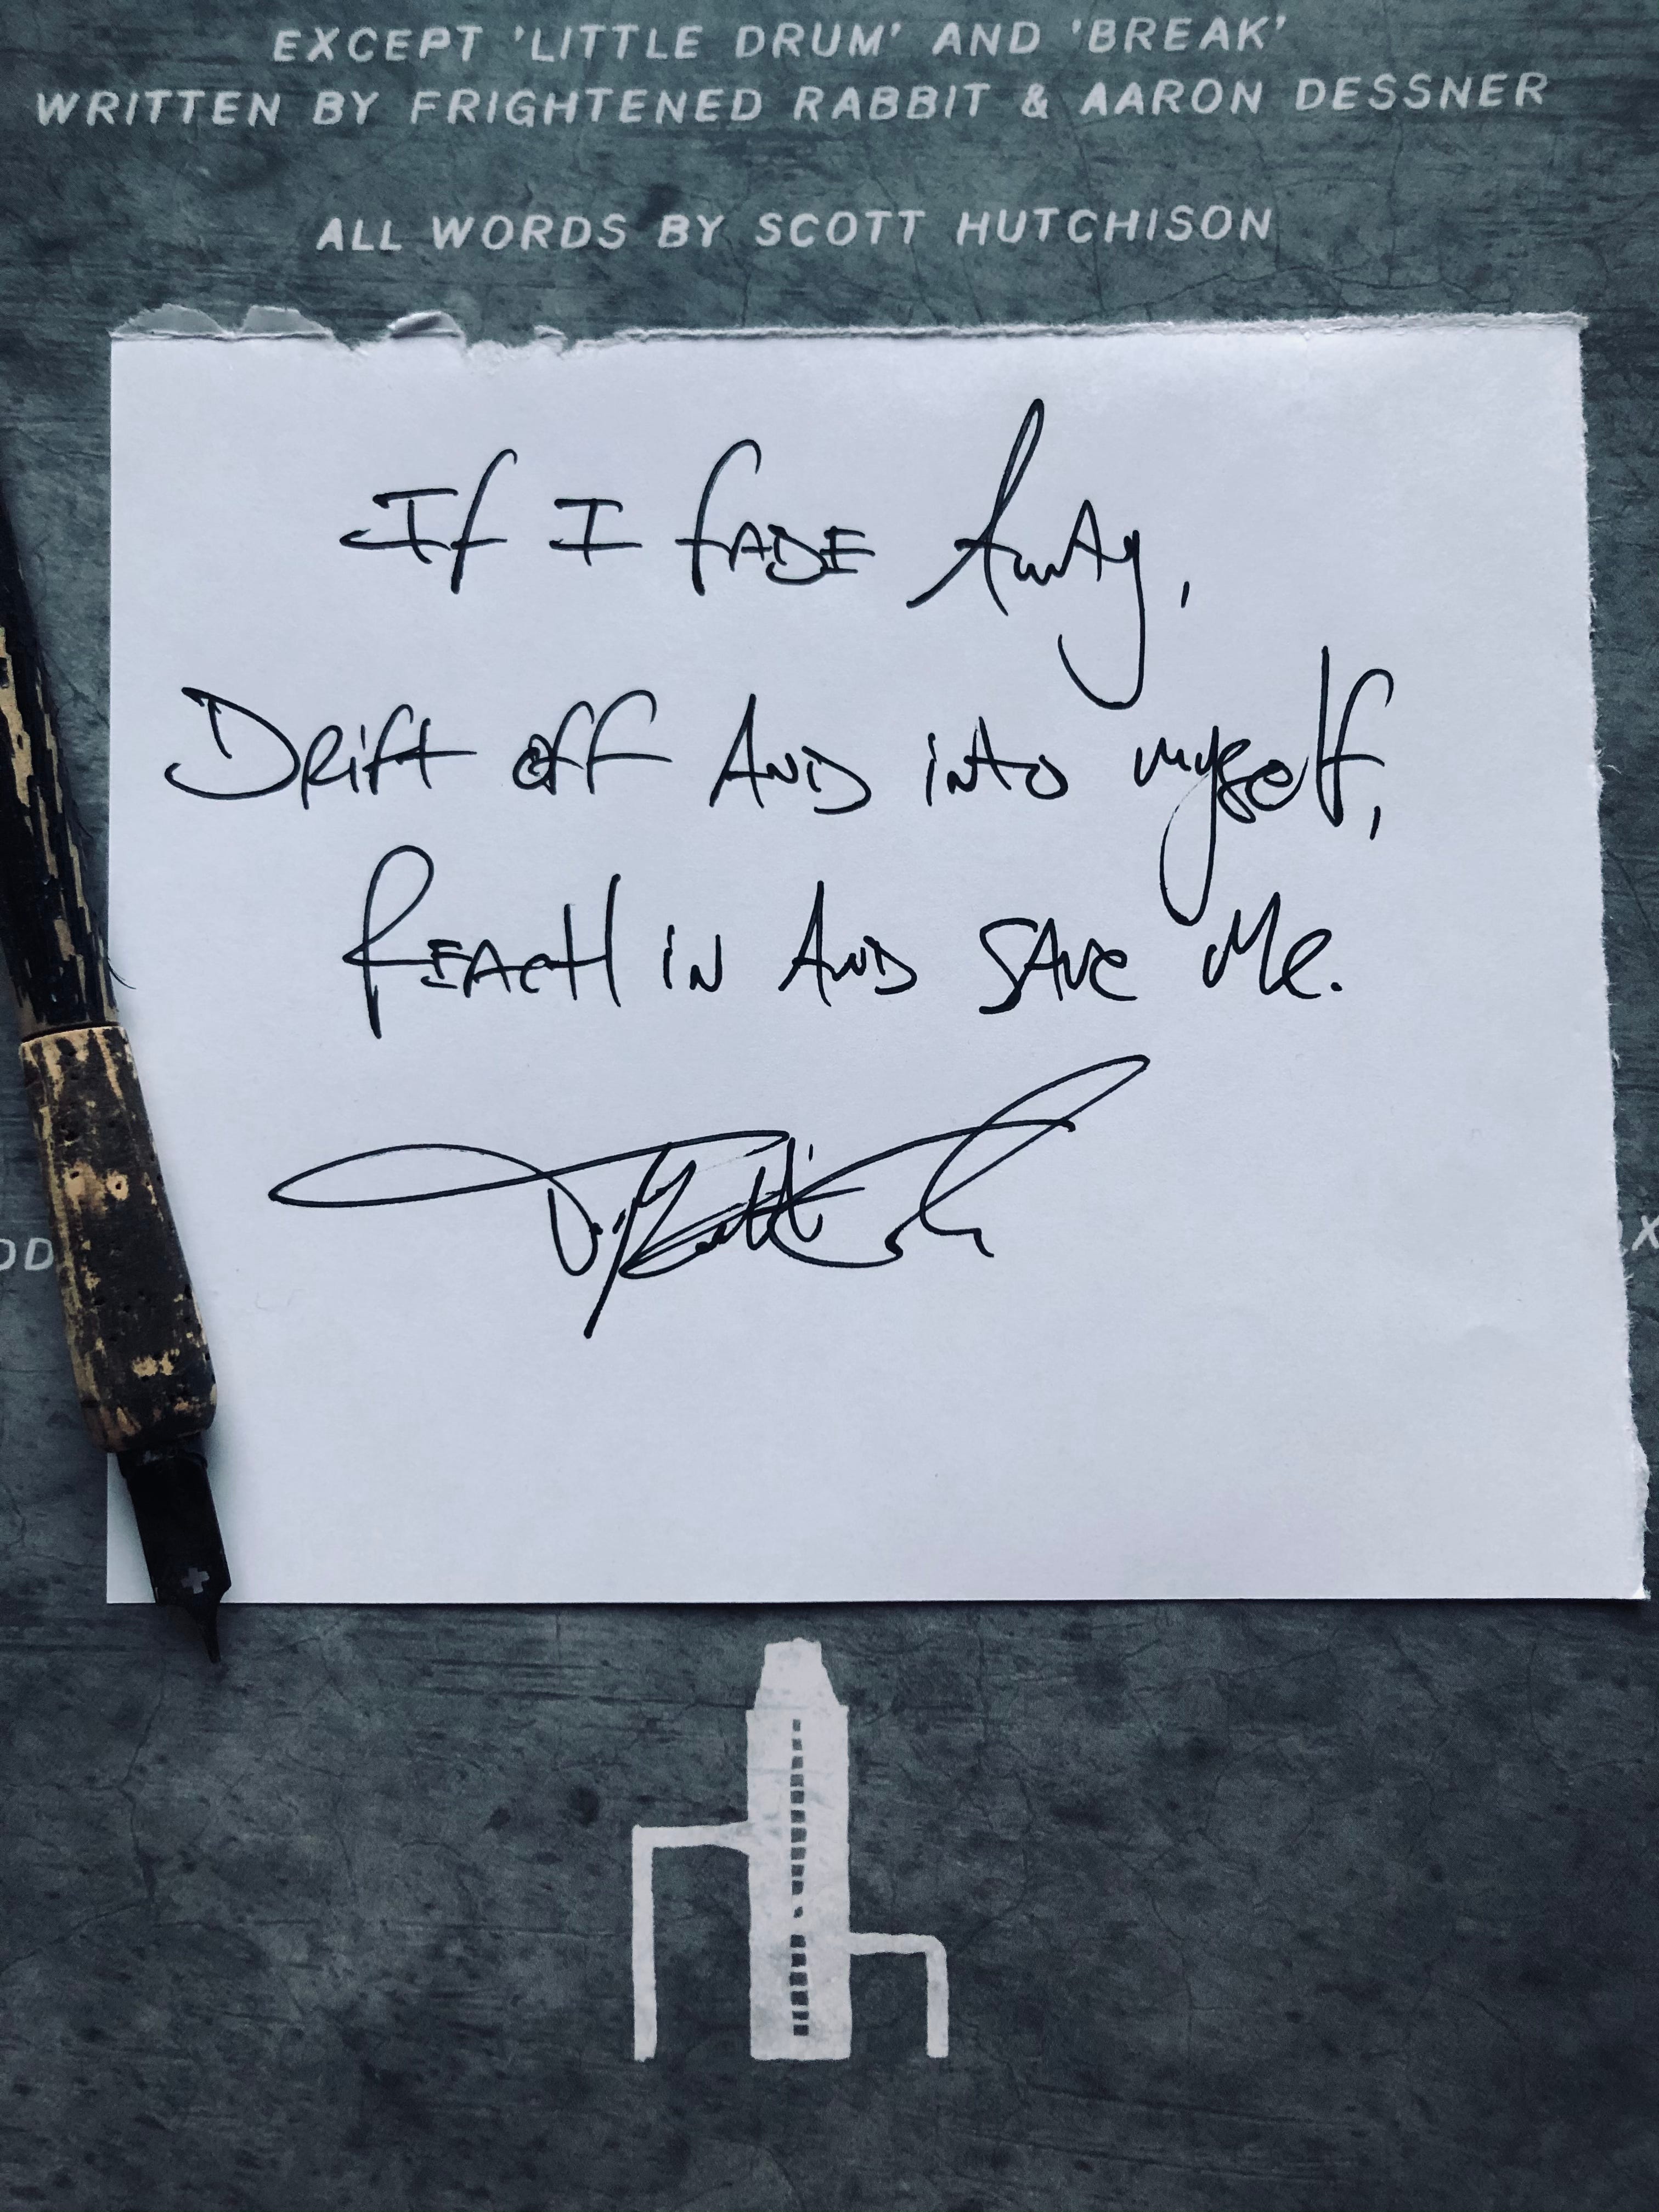 EXCEPT 'LITTLE DRUM' AND 'BREAK'
WRITTEN BY FRIGHTENED RABBIT & AARON DESSNER
ALL WORDS BY SCOTT HUTCHISON
If I fADE AwAy,
DRift off AND into myself,
REACH iN AND SAVe Me.